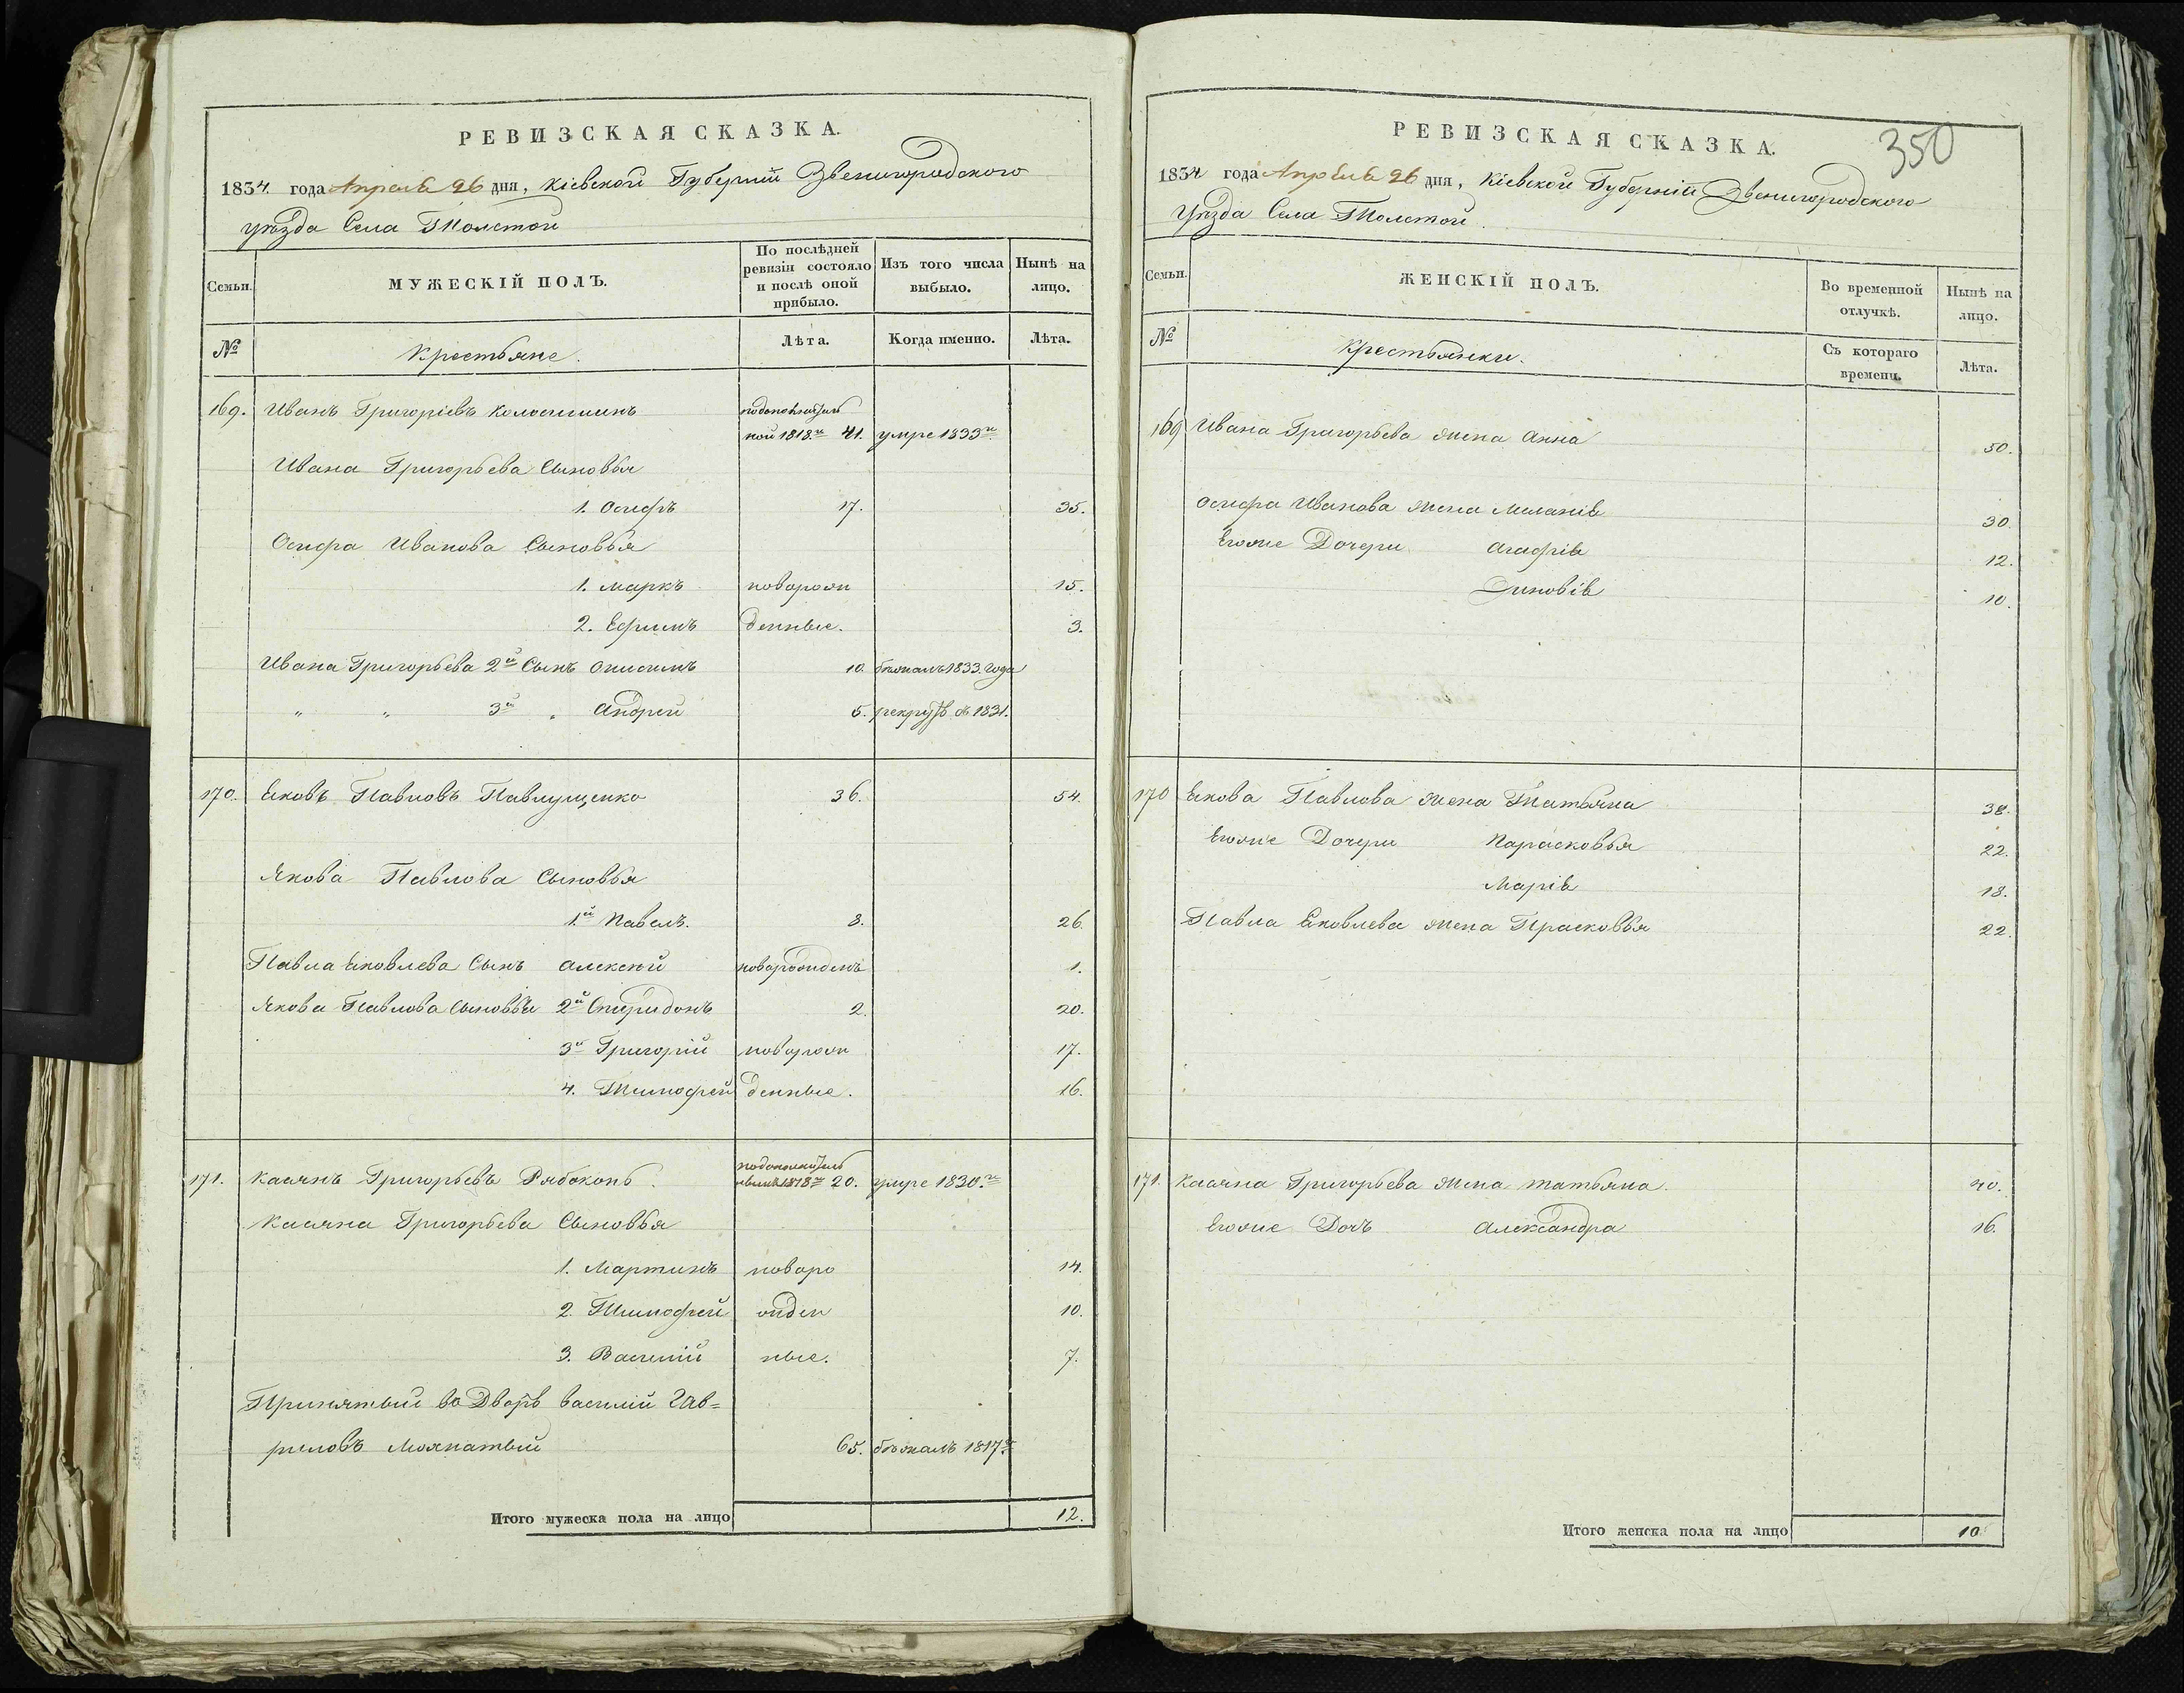 РЕВИЗСКАЯ СКАЗКА.
1834. года Апреля 26 дня, Кіевской Губерніи Звенигородского
уѣзда Села Толстой
Семьи.
МУЖЕСКІЙ ПОЛЪ.
По послѣдней ревизіи состояло и послѣ оной прибыло.
Изъ того числа выбыло.
Нынѣ на лицо.
№
Крестьяне.
Лѣта.
Когда именно.
Лѣта.
169. Иванъ Григоріевъ
1818го 41. умре 1833го
Ивана Григорьева Сыновья
1. Осифъ 17. 35.
Осифа Иванова Сыновья
1. Маркъ новорож 15.
2. Ефимъ денные. 3.
Ивана Григорьева 2й Сынъ Онисимъ 10. бѣжалъ 1833. года
" " 3й " Андрей 5. рекрутъ съ 1831.
170. Яковъ Павловъ Павлущенко 36. 54.
Якова Павлова Сыновья
1й Павелъ. 8. 26.
Павла Яковлева Сынъ Алексѣй новорожденъ 1.
Якова Павлова Сыновья 2й Спиридонъ 2. 20.
3й Григорій новорож 17.
4. Тимофей денные. 16.
171. Касянъ Григорьевъ Рябоконь.
1818го 20. умре 1830.го
Касяна Григорьева Сыновья
1. Мартинъ новоро 14.
2. Тимофей жден 10.
3. Василій ные. 7.
Принятый во Дворъ Василій Гав=
риловъ 65. бѣжалъ 1817го
Итого мужеска пола на лицо 12.
350
РЕВИЗСКАЯ СКАЗКА.
1834 года Апреля 26 дня, Кіевской Губерніи Звенигородского
Уѣзда Села Толстой.
Семьи.
ЖЕНСКІЙ ПОЛЪ.
Во временной отлучкѣ.
Нынѣ на лицо.
№
Крестьянки.
Съ котораго времени.
Лѣта.
169 Ивана Григорьева жена Анна 50.
Осифа Иванова жена Меланія 30.
Егоже Дочери Агафія 12.
Зиновія 10.
170 Якова Павлова жена Татьяна 38.
Егоже Дочери Парасковья 22.
Марія 18.
Павла Яковлева жена Прасковья 22.
171. Касяна Григорьева жена татьяна. 40.
Егоже Дочь Александра 16.
Итого женска пола на лицо 10